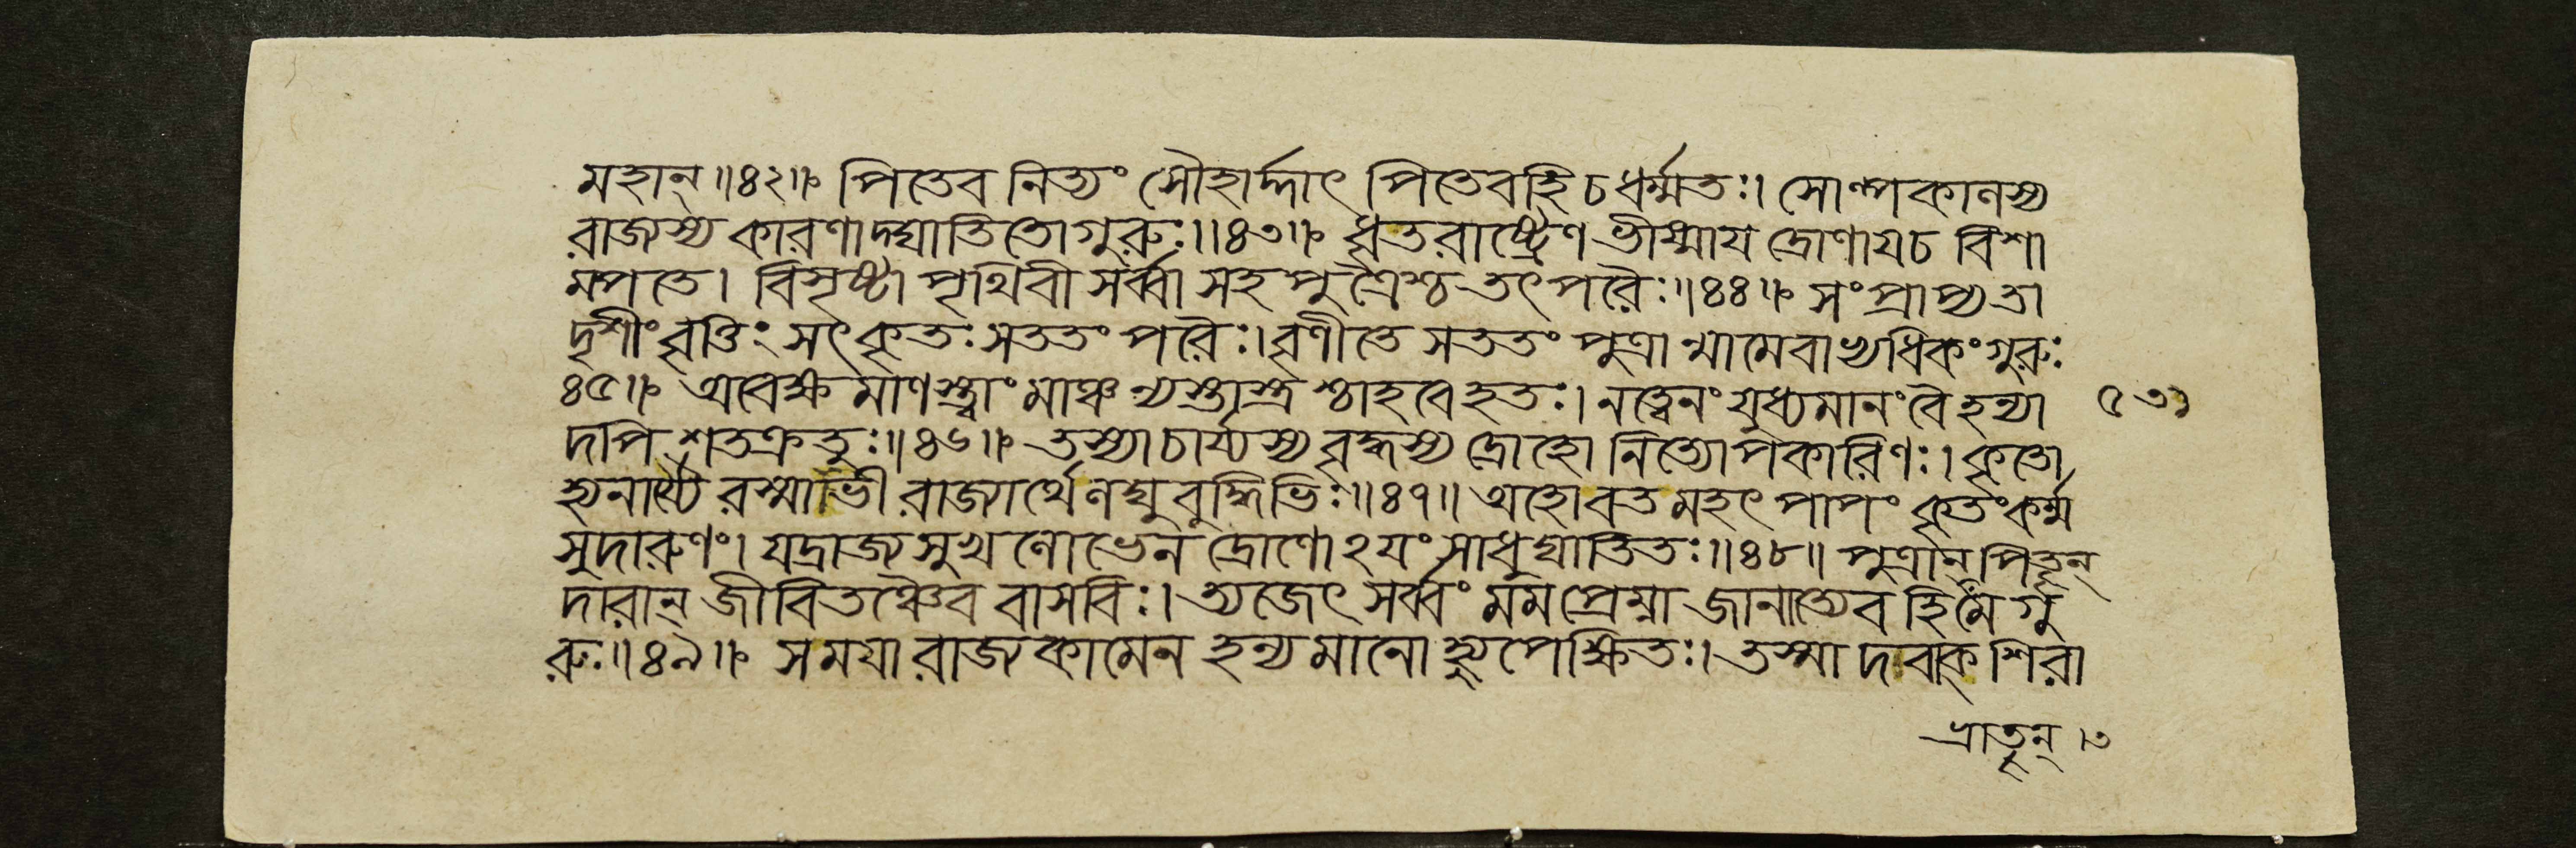 মহান্॥৪২॥ পিতেব নিত্যং সৌহার্দ্দাৎ পিতেবহি চ ধর্ম্মতঃ। সোল্পকালস্য
রাজ্যস্য কারণাদ্ঘাতিতোগুরুঃ॥৪৩॥ ধৃতরাষ্ট্রেণ ভীষ্মায দ্রোণাযচ বিশা
ম্পতে। বিসৃষ্টা পৃথিবী সর্ব্বা সহ পুত্রৈশ্চ তৎপরৈঃ॥৪৪॥ সংপ্রাপ্য তা
দৃশীং বৃত্তিং সৎকৃতঃ সততং পরৈঃ। বৃণীতে সততং পুত্রান্মামেবাভ্যধিকং গুরুঃ
৪৫॥ অবেক্ষমাণস্ত্বাং মাঞ্চ ন্যস্তাস্ত্রশ্চাহবে হতঃ। নত্বেনং যুধ্যমানং বৈ হন্যা
দপি শতক্রতুঃ॥৪৬॥ তস্যাচার্য্যস্য বৃদ্ধস্য দ্রোহো নিত্যোপকারিণঃ। কৃতো
হ্যনার্য্যৈরস্মাভী রাজ্যার্থে লঘুবুদ্ধিভিঃ॥৪৭॥ অহোবত মহৎ পাপং কৃতং কর্ম্ম
সুদারুণং। যদ্রাজ্যসুখলোভেন দ্রোণোঽযং সাধুঘাতিতঃ॥৪৮॥ পুত্রান্ পিতৄন্
দারান্ জীবিতঞ্চৈব বাসবিঃ। ত্যজেৎ সর্ব্বং মম প্রেম্না জানাত্যেব হি মে গু
রুঃ॥৪৯॥ স ময়া রাজ্যকামেন হন্যমানো হ্যুপেক্ষিতঃ। তস্মাদবাক্শিরা
৫৩১
ভ্রাতৄন্ ৷৩